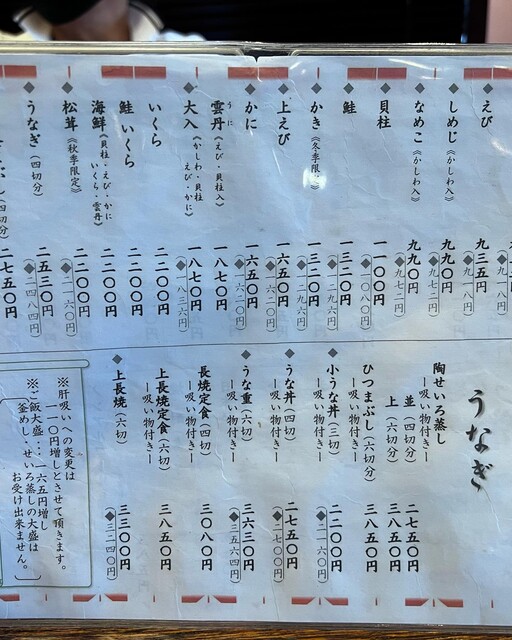 (◆九一八円)
◆えび 九三五円
(◆九一八円)
◆しめじ《かしわ入》 九九〇円
(◆九七二円)
◆なめこ《かしわ入》 九九〇円
(◆九七二円)
◆貝柱 一一〇〇円
(◆一〇八〇円)
◆鮭 一三二〇円
(◆一二九六円)
◆かき《冬季限 一三二〇円
(◆一二九六円)
◆上えび 一六五〇円
(◆一六二〇円)
◆かに 一六五〇円
(◆一六二〇円)
うに
雲丹《えび・貝柱入》 一八七〇円
◆大入《かしわ・貝柱 一八七〇円
えび・かに》
(◆一八三六円)
いくら 二二〇〇円
鮭 いくら 二二〇〇円
海鮮《貝柱・えび・かに 二二〇〇円
いくら・雲丹》
◆松茸《秋季限定》 二二〇〇円
(◆二一六〇円)
◆うなぎ(四切分) 二五三〇円
(◆二四八四円)
(四切分) 二七五〇円
うなぎ
陶せいろ蒸し
ー吸い物付きー
並(四切分) 二七五〇円
上(六切分) 三八五〇円
ひつまぶし(六切分) 三八五〇円
ー吸い物付きー
◆小うな丼(三切) 二二〇〇円
ー吸い物付きー (◆二一六〇円)
◆うな丼(四切) 二七五〇円
ー吸い物付きー (◆二七〇〇円)
◆うな重(六切) 三六三〇円
ー吸い物付きー (◆三五六四円)
長焼定食(四切) 三〇八〇円
ー吸い物付きー
上長焼定食(六切) 三八五〇円
ー吸い物付きー
◆上長焼(六切) 三三〇〇円
(◆三二四〇円)
※肝吸いへの変更は
一一〇円増しとさせて頂きます。
※ご飯大盛…一六五円増し
釜めし、せいろ蒸しの大盛は
お受け出来ません。